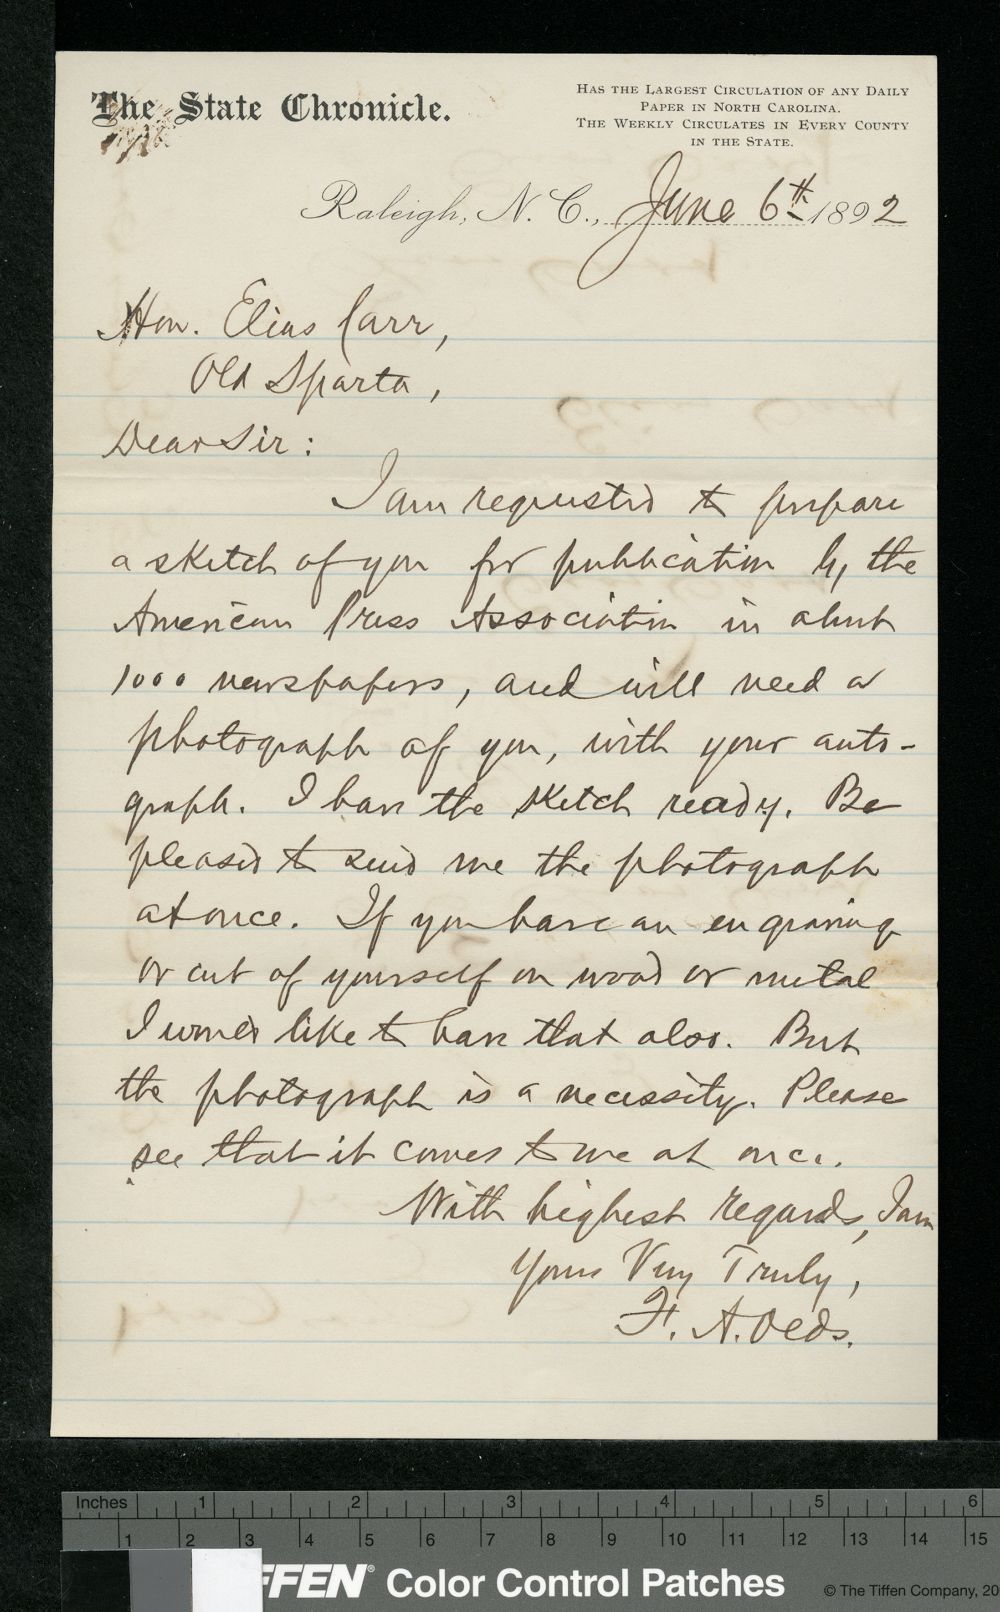 The State Chronicle.
HAS THE LARGEST CIRCULATION OF ANY DAILY
PAPER IN NORTH CAROLINA.
THE WEEKLY CIRCULATES IN EVERY COUNTY
IN THE STATE.
Raleigh, N. C., June 6th 1892
Hon. Elias Carr,
Old Sparta,
Dear Sir:
I am requested to prepare
a sketch of you for publication by the
American Press Association in about
1000 newspapers, and will need a
photograph of you, with your auto-
graph. I have the sketch ready. Be
pleased to send me the photograph
at once. If you have an engraving
or cut of yourself on wood or metal
I would like to have that also. But
the photograph is a necessity. Please
see that it comes to me at once.
With highest regards, I am
Yours Very Truly,
F. A. Olds.
Inches 1 2 3 4 5 6
1 2 3 4 5 6 7 8 9 10 11 12 13 14 15
FFEN® Color Control Patches
© The Tiffen Company, 20